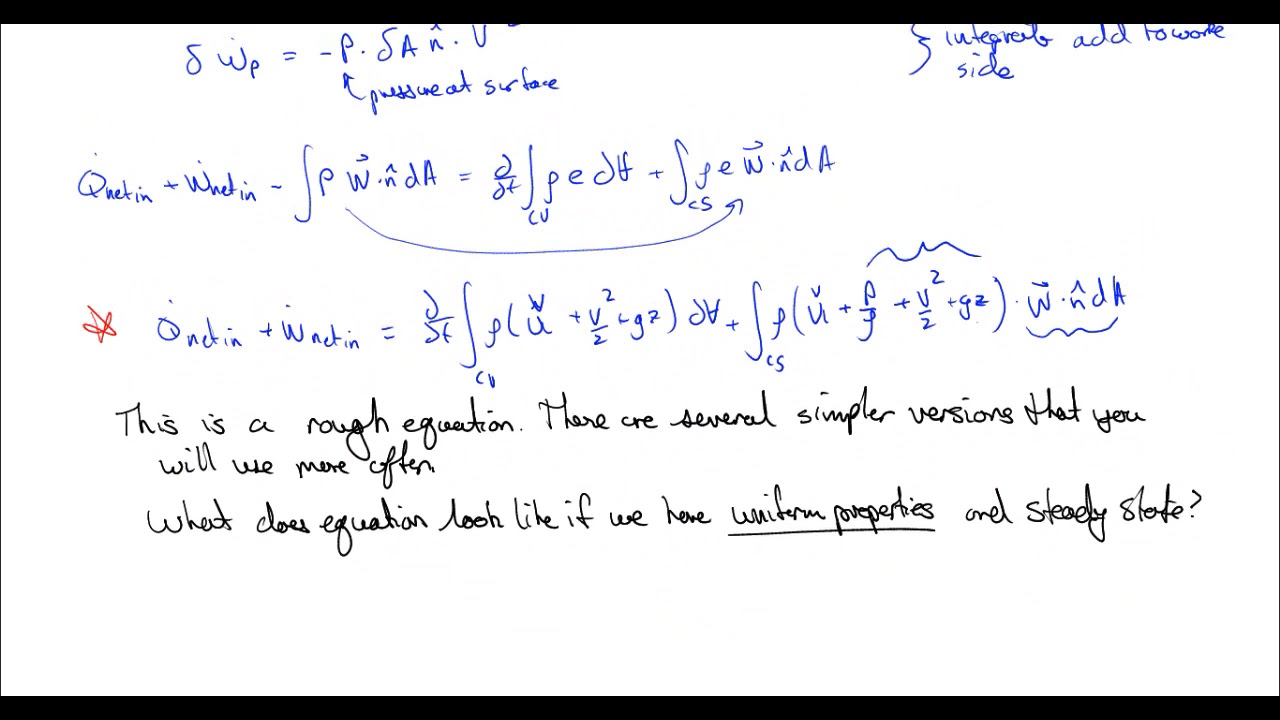 δẆp = -P · δA n̂ · V
} integrate add to work
side
↖ pressure at surface
Q̇net in + Ẇnet in - ∫ P W⃗·n̂ dA = ∂/∂t ∫CV ρ e dV + ∫CS ρ e W⃗·n̂ dA
☆ Q̇net in + Ẇnet in = ∂/∂t ∫CV ρ(ǔ + V²/2 + gz) dV + ∫CS ρ(ǔ + P/ρ + V²/2 + gz) · W⃗·n̂ dA
This is a rough equation. There are several simpler versions that you
will use more often.
What does equation look like if we have uniform properties and steady state?